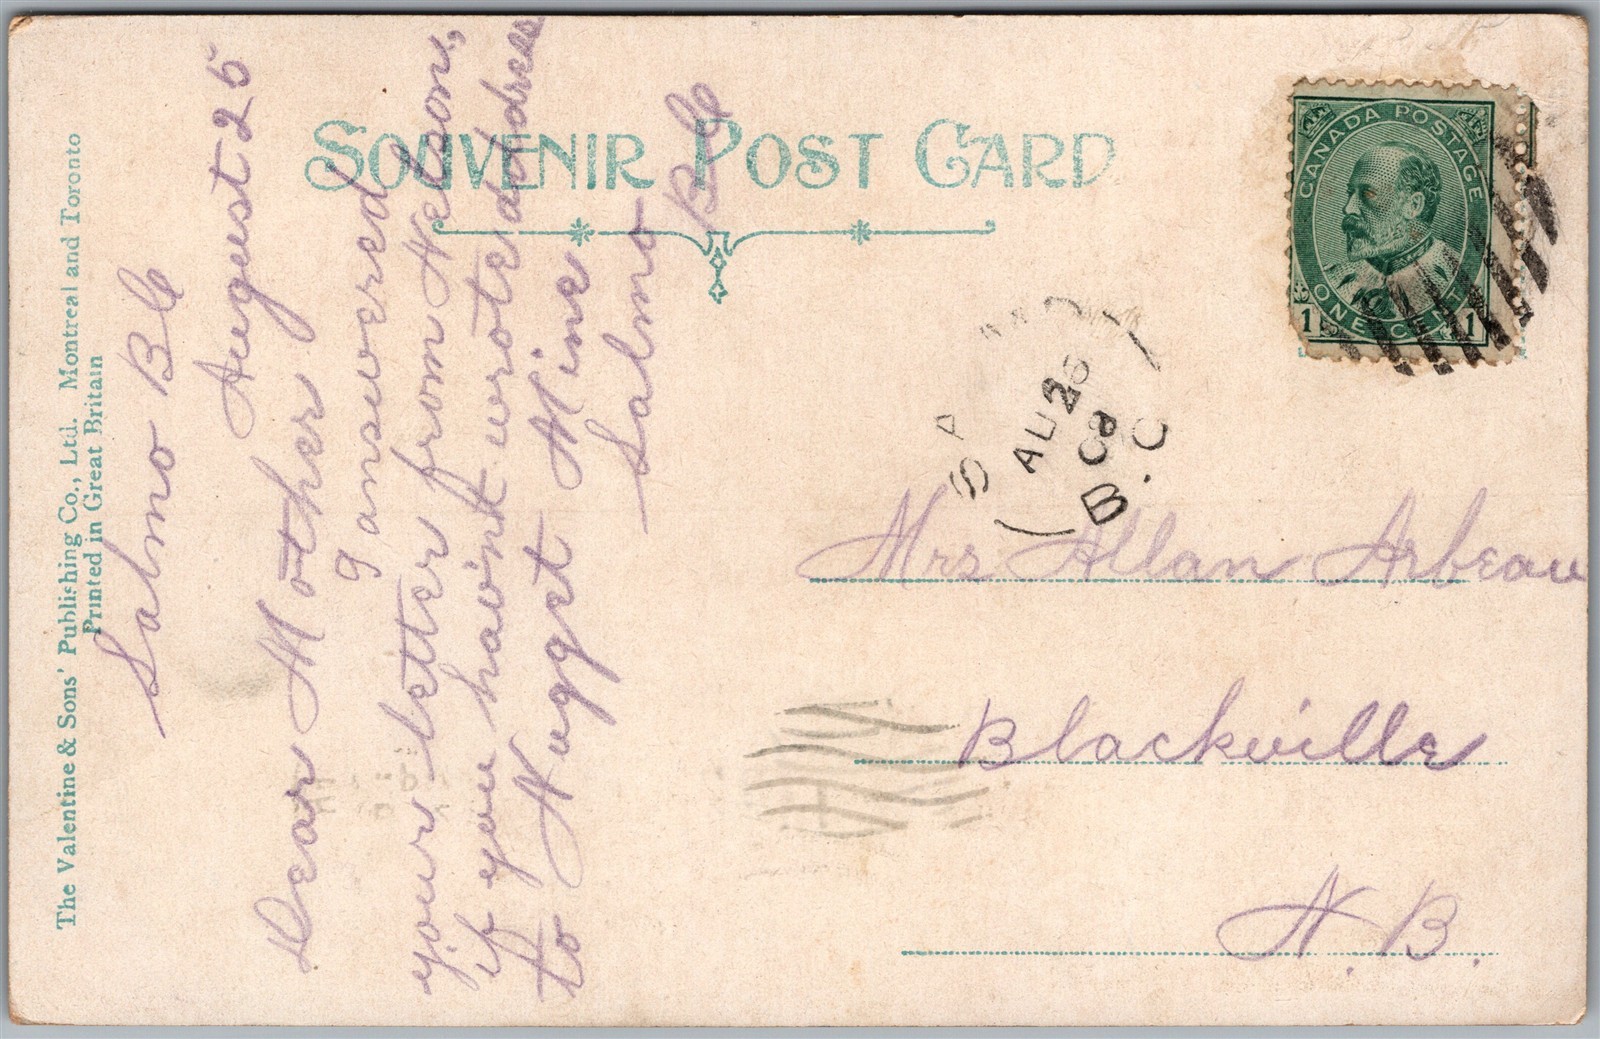 SOUVENIR POST CARD
The Valentine & Sons' Publishing Co., Ltd. Montreal and Toronto
Printed in Great Britain
Salmo BC
August 25
Dear Mother
I answered
your letter from Nelson,
if you havint wrote address
to Nugget Mine
Salmo BC
CANADA POSTAGE
1 ONE CENT 1
AU 26
08
B.C
Mrs Allan Arbeau
Blackville
N.B.